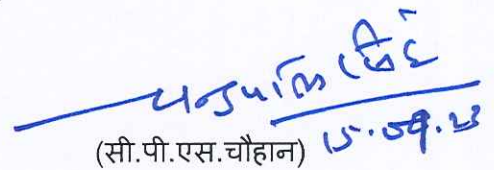 चन्द्रपाल सिंह
(सी.पी.एस.चौहान) 15.09.23